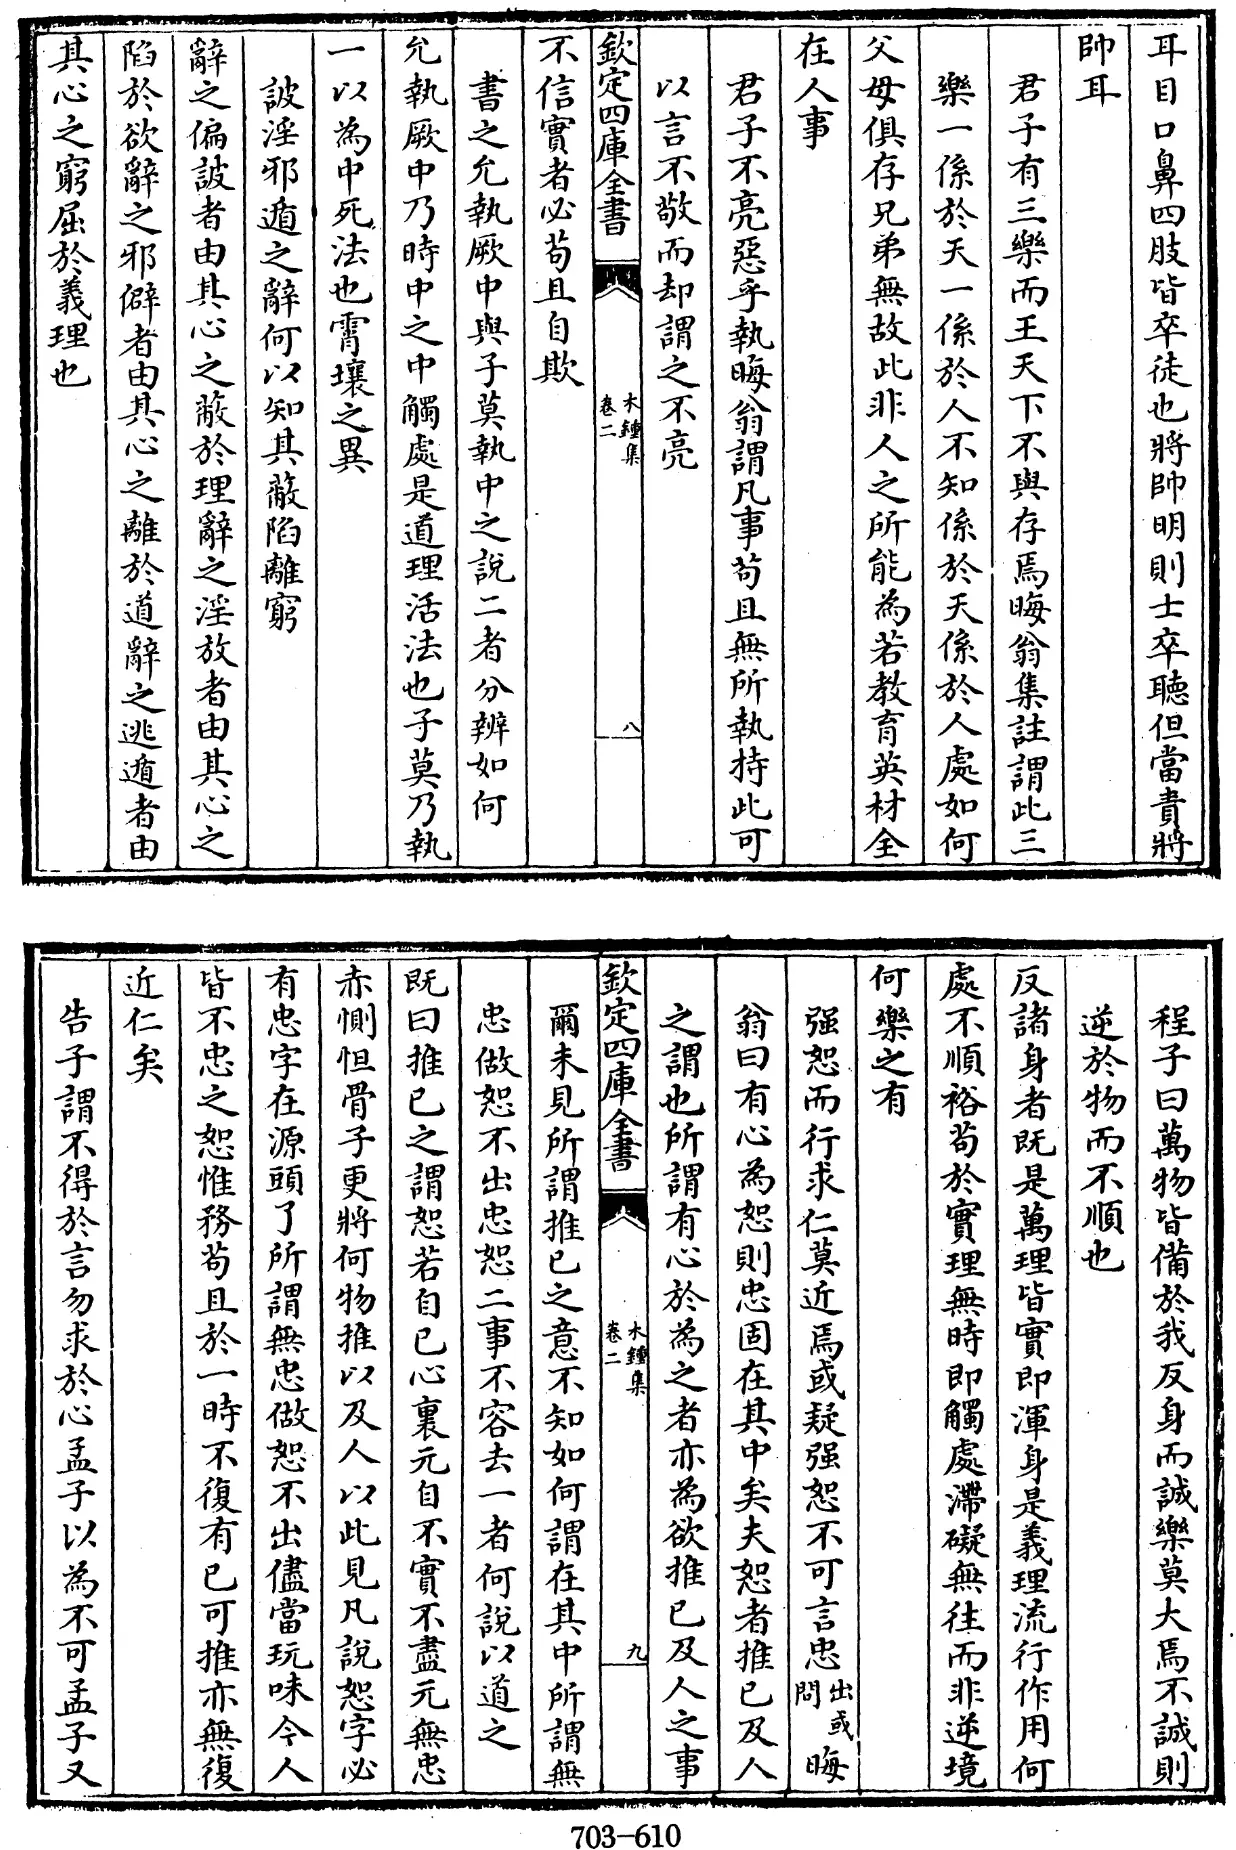 耳目口鼻四肢皆卒徒也將帥明則士卒聽但當責將
帥耳
君子有三樂而王天下不與存焉晦翁集註謂此三
樂一係於天一係於人不知係於天係於人處如何
父母俱存兄弟無故此非人之所能為若教育英材全
在人事
君子不亮惡乎執晦翁謂凡事苟且無所執持此可
以言不敬而却謂之不亮
欽定四庫全書
木鍾集
卷二
八
不信實者必苟且自欺
書之允執厥中與子莫執中之說二者分辨如何
允執厥中乃時中之中觸處是道理活法也子莫乃執
一以為中死法也霄壤之異
詖淫邪遁之辭何以知其蔽陷離窮
辭之偏詖者由其心之蔽於理辭之淫放者由其心之
陷於欲辭之邪僻者由其心之離於道辭之逃遁者由
其心之窮屈於義理也
程子曰萬物皆備於我反身而誠樂莫大焉不誠則
逆於物而不順也
反諸身者既是萬理皆實即渾身是義理流行作用何
處不順裕苟於實理無時即觸處滯礙無往而非逆境
何樂之有
强恕而行求仁莫近焉或疑强恕不可言忠出或問晦
翁曰有心為恕則忠固在其中矣夫恕者推已及人
之謂也所謂有心於為之者亦為欲推已及人之事
欽定四庫全書
木鍾集
卷二
九
爾未見所謂推已之意不知如何謂在其中所謂無
忠做恕不出忠恕二事不容去一者何說以道之
既曰推已之謂恕若自已心裏元自不實不盡元無忠
赤惻怛骨子更將何物推以及人以此見凡說恕字必
有忠字在源頭了所謂無忠做恕不出儘當玩味今人
皆不忠之恕惟務苟且於一時不復有已可推亦無復
近仁矣
告子謂不得於言勿求於心孟子以為不可孟子又
703-610